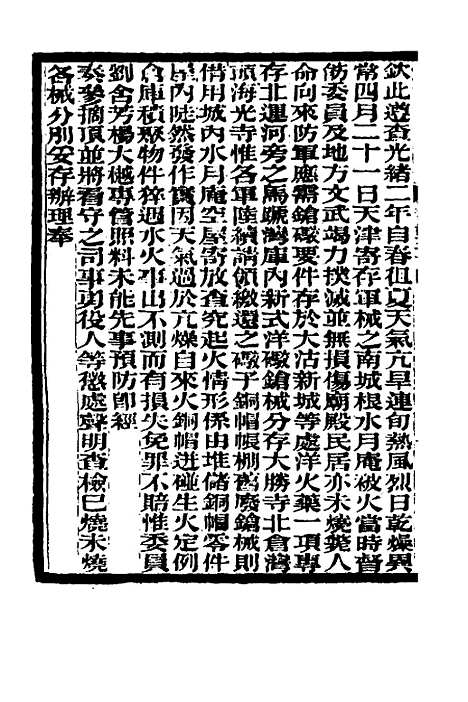 欽此遵查光緒二年自春徂夏天氣亢旱連旬熱風烈日乾燥異
常四月二十一日天津寄存軍械之南城根水月庵被火當時督
飭委員及地方文武竭力撲滅並無損傷廟殿民居亦未燒斃人
命向來防軍應需鎗礮要件存於大沽新城等處洋火藥一項專
存北運河旁之馬號灣庫內新式洋礮鎗械分存大勝寺北倉灣
頭海光寺惟各軍陸續請領繳還之礮子銅帽帳棚舊廢鎗械則
借用城內水月庵空屋寄放查究起火情形係由堆儲銅帽零件
屋內陡然發作實因天氣過於亢燥自來火銅帽迸碰生火定例
倉庫積聚物件猝遇水火事出不測而有損失免罪不賠惟委員
劉含芳楊大樾專管照料未能先事預防卽經
奏參摘頂並將看守之司事勇役人等懲處聲明查檢已燒未燒
各械分別妥存辦理奉